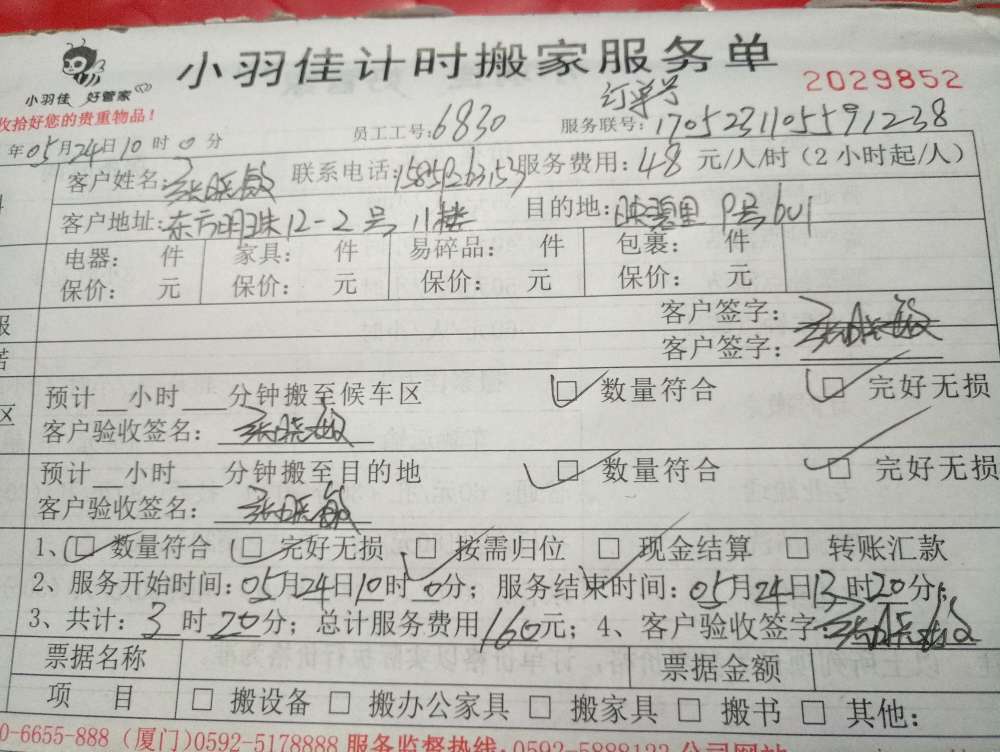 小羽佳计时搬家服务单
小羽佳 好管家
2029852
收拾好您的贵重物品!
订单号
年05月24日10时0分 员工工号:6830 服务联号:170523110559 1238
客户姓名: 联系电话: 服务费用:48元/人/时(2小时起/人)
客户地址:东方明珠12-2号 11楼 目的地: 9号601
电器: 件 家具: 件 易碎品: 件 包裹: 件
保价: 元 保价: 元 保价: 元 保价: 元
客户签字:
客户签字:
预计__小时___分钟搬至候车区 □ 数量符合 □ 完好无损
客户验收签名:
预计__小时___分钟搬至目的地 □ 数量符合 □ 完好无损
客户验收签名:
1、□ 数量符合 □ 完好无损 □ 按需归位 □ 现金结算 □ 转账汇款
2、服务开始时间:05月24日10时0分;服务结束时间:05月24日13时20分;
3、共计:3时20分;总计服务费用160元;4、客户验收签字:
票据名称 票据金额
项 目 □ 搬设备 □ 搬办公家具 □ 搬家具 □ 搬书 □ 其他:
0-6655-888 (厦门)0592-5178888 服务监督热线: